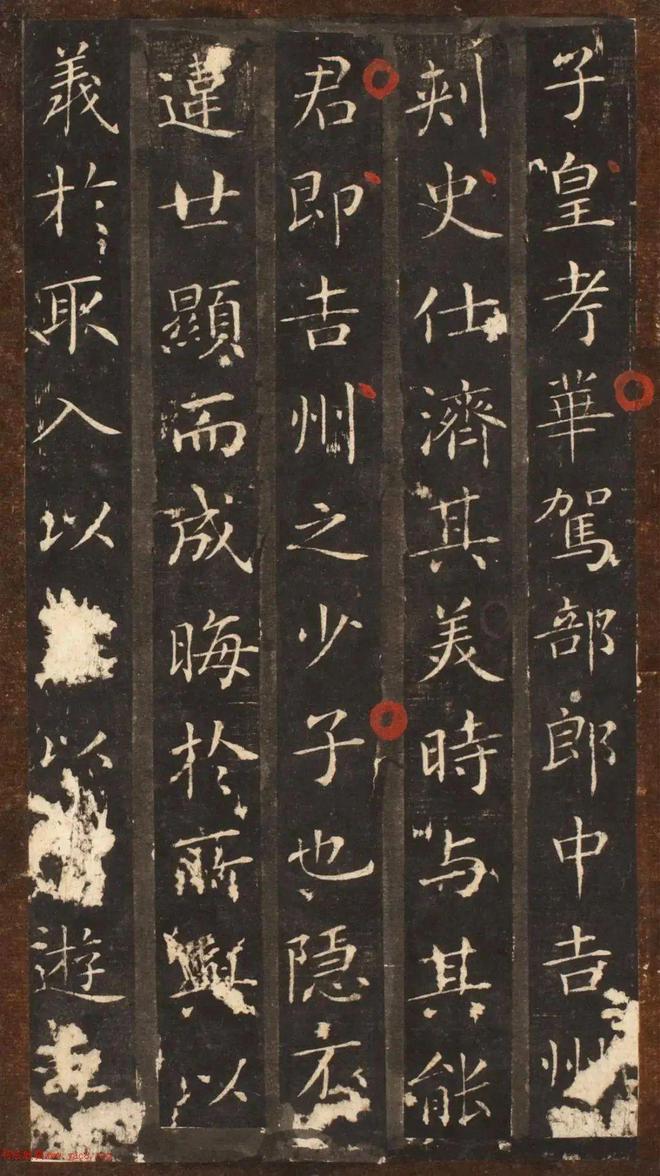 子皇考華駕部郎中吉州
刺史仕濟其美時与其能
君即吉州之少子也隱不
違廿顯而成晦於所與以
義於取入以以遊